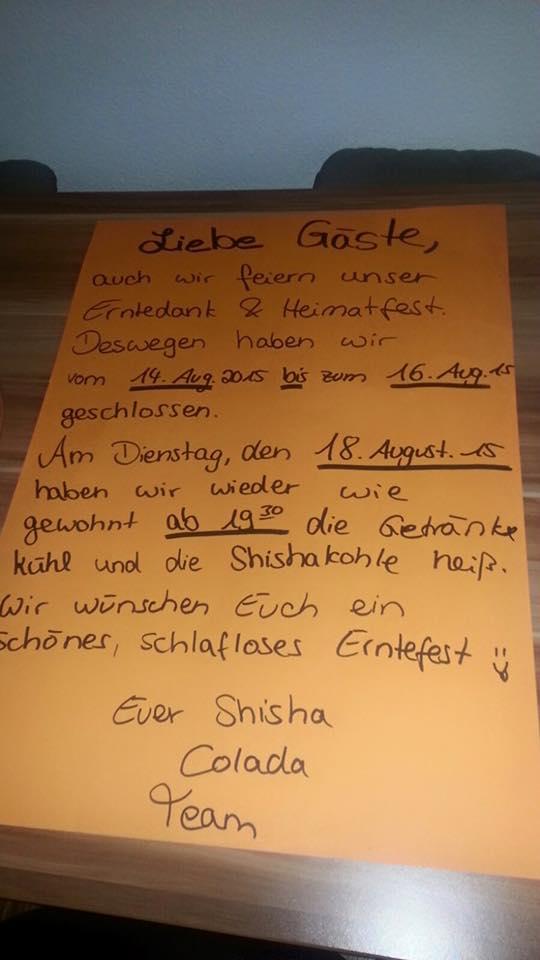 Liebe Gäste,
auch wir feiern unser
Erntedank & Heimatfest.
Deswegen haben wir
vom 14. Aug. 2015 bis zum 16. Aug. 15
geschlossen.
Am Dienstag, den 18. August. 15
haben wir wieder wie
gewohnt ab 19 30 die Getränke
kühl und die Shishakohle heiß.
Wir wünschen Euch ein
schönes, schlafloses Erntefest
Euer Shisha
Colada
Team